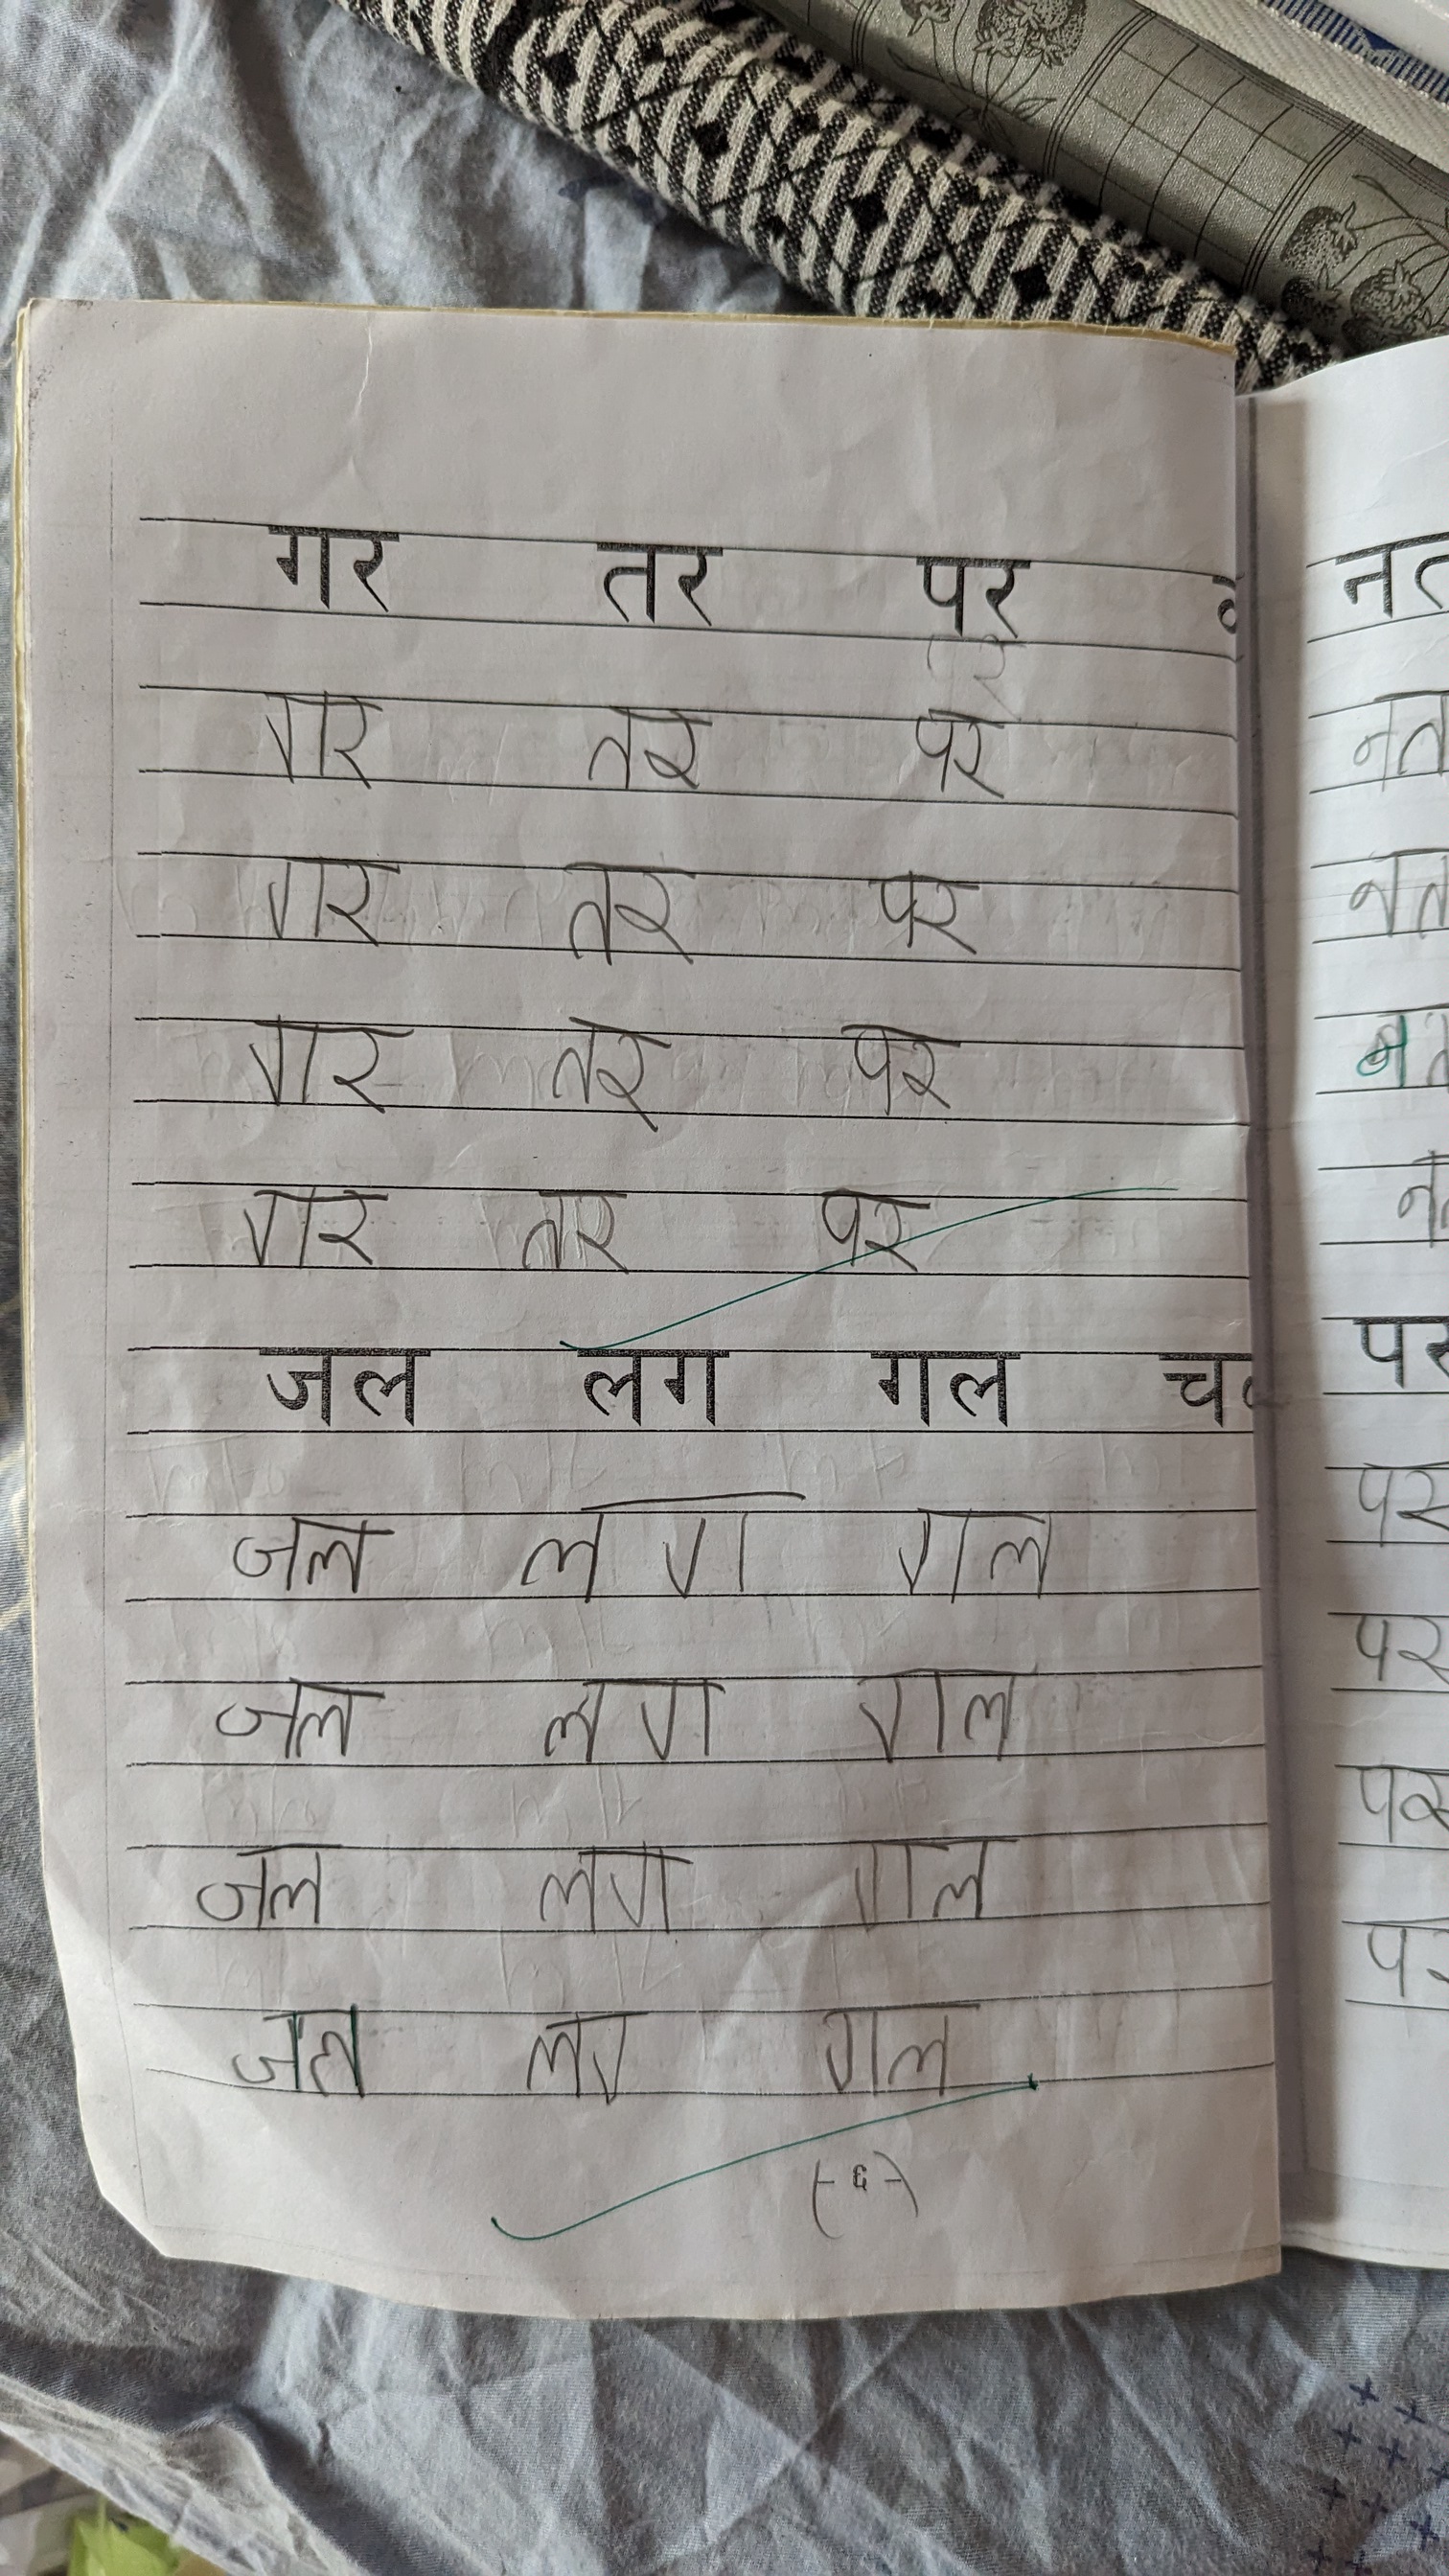 गर तर पर
गर तर पर
गर तर पर
गर तर पर
गर तर पर
जल लग गल
जल लग गल
जल लग गल
जल लग गल
जल गल
नत
नत
नत
नत
पर
पर
पर